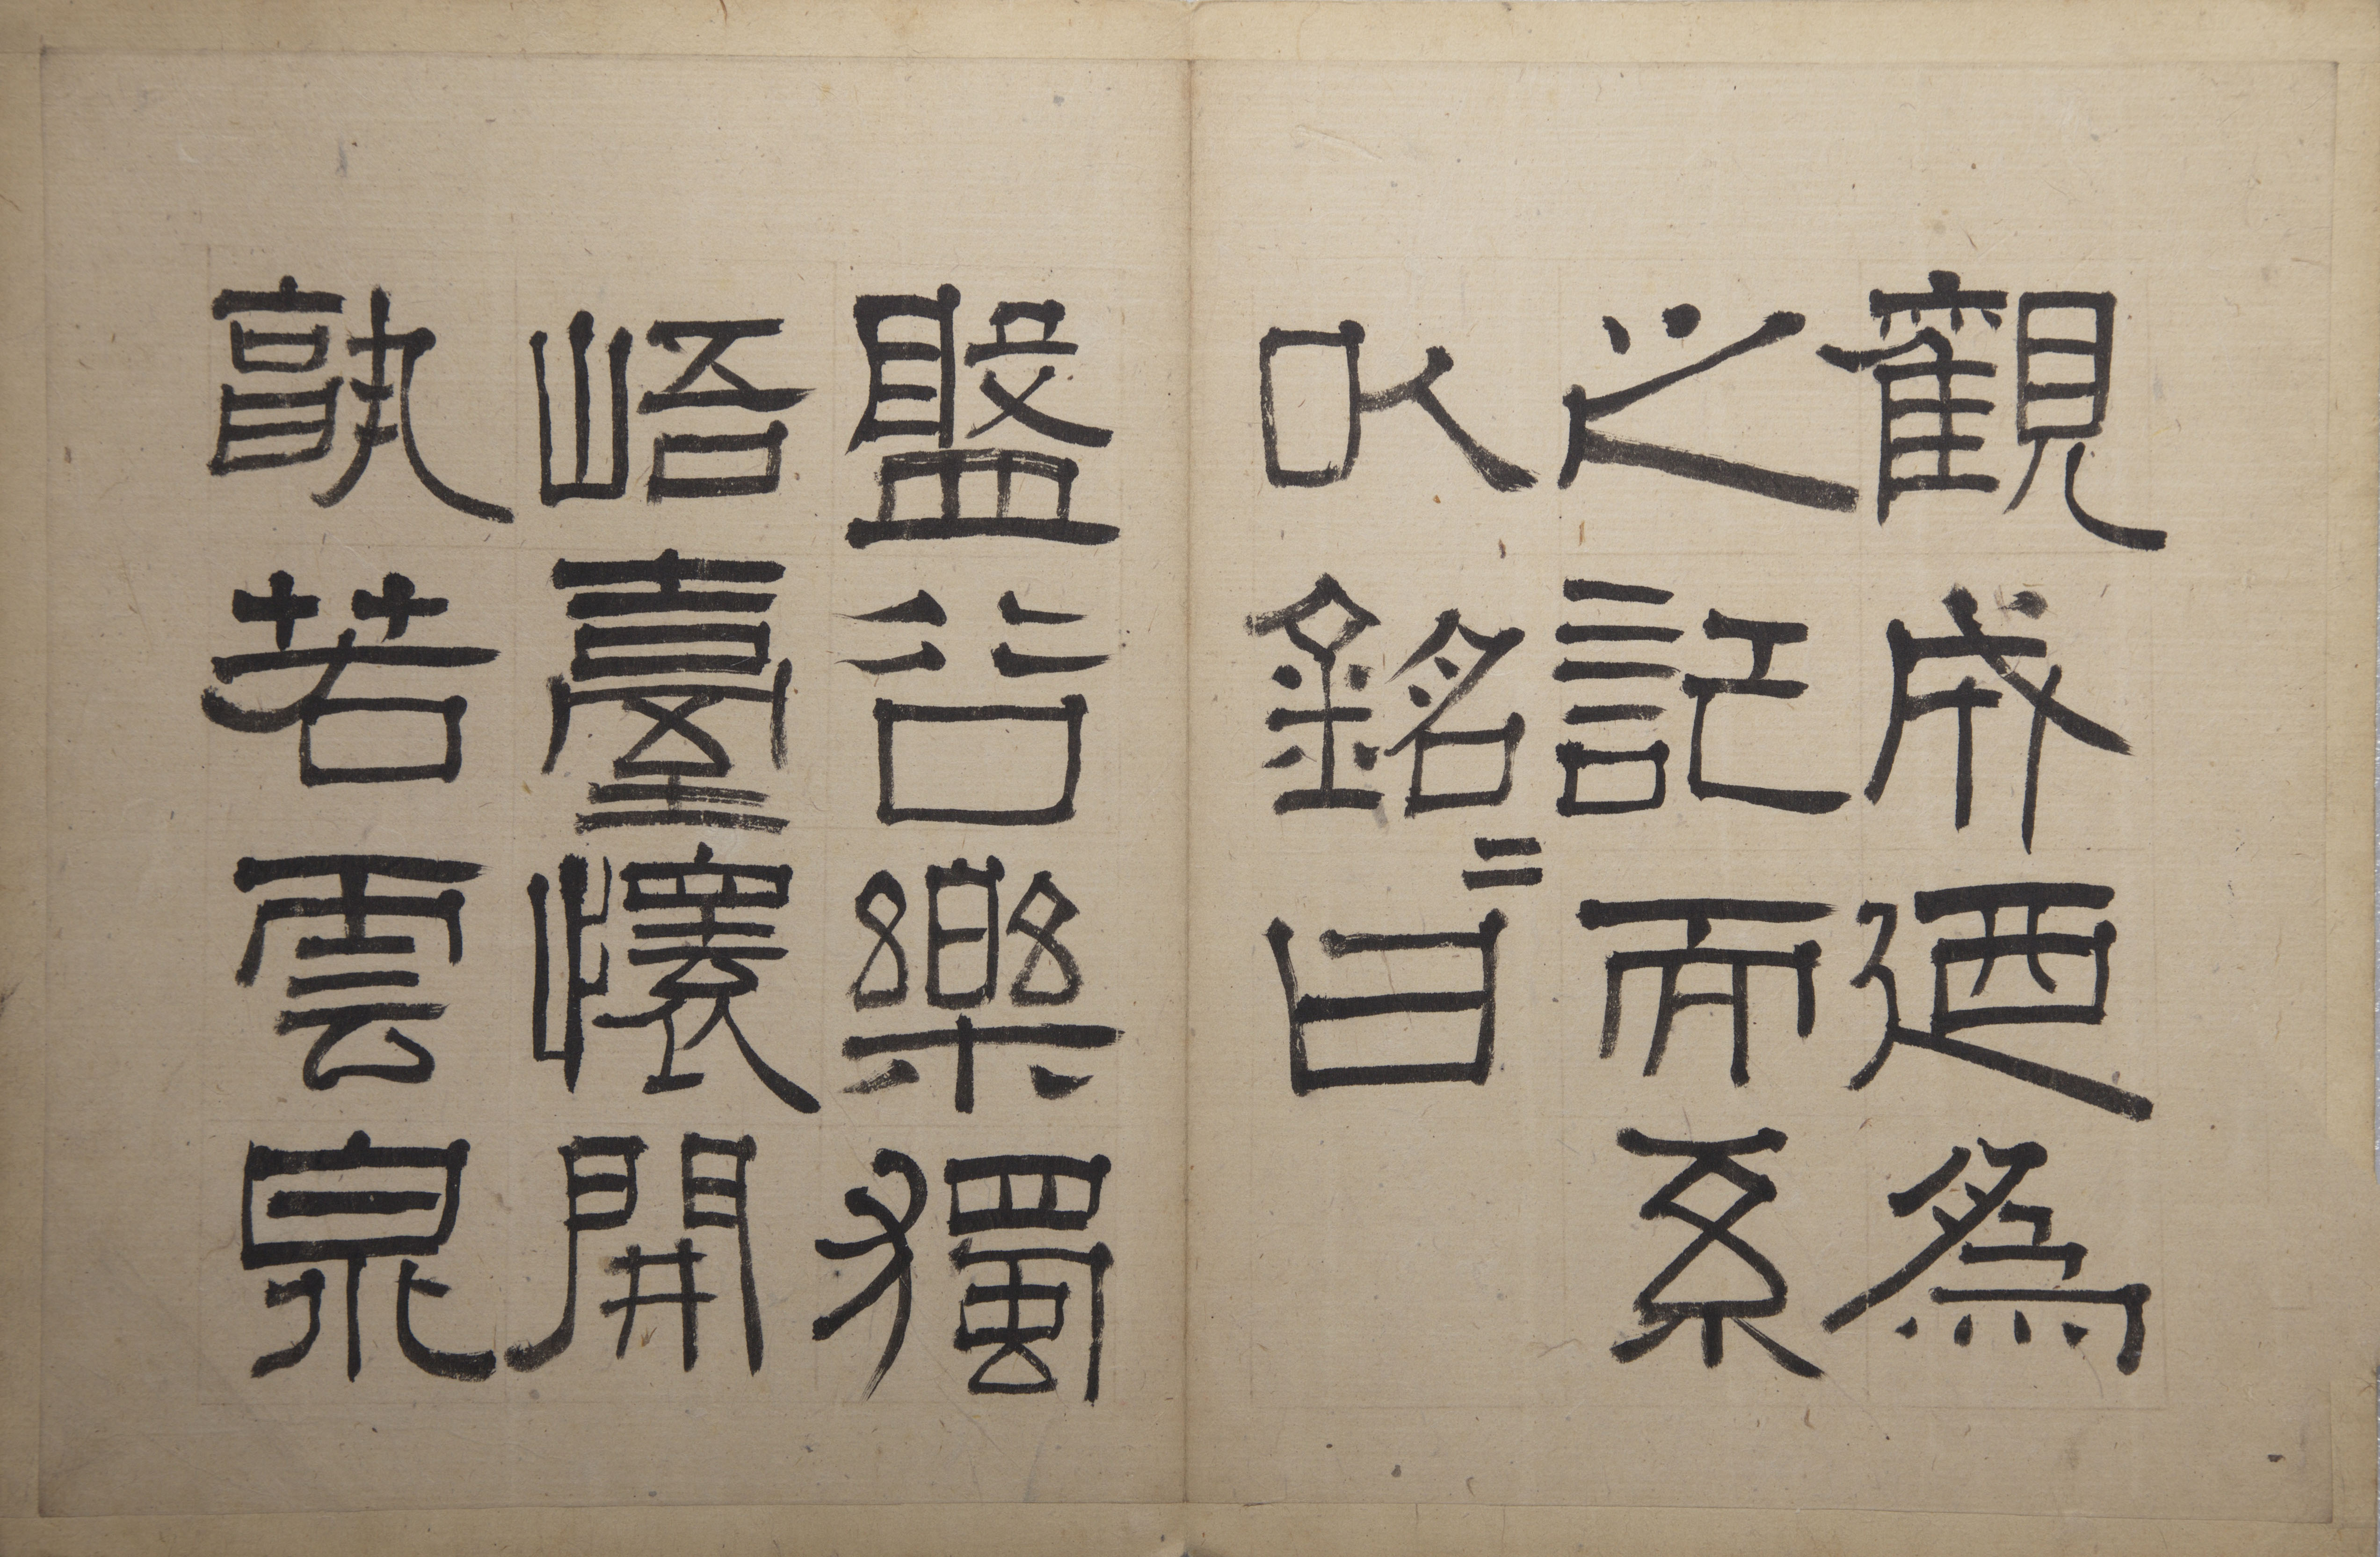 觀成廼為
之記而系
以銘〻曰
盤谷樂獨
峿臺懷開
孰若雲泉